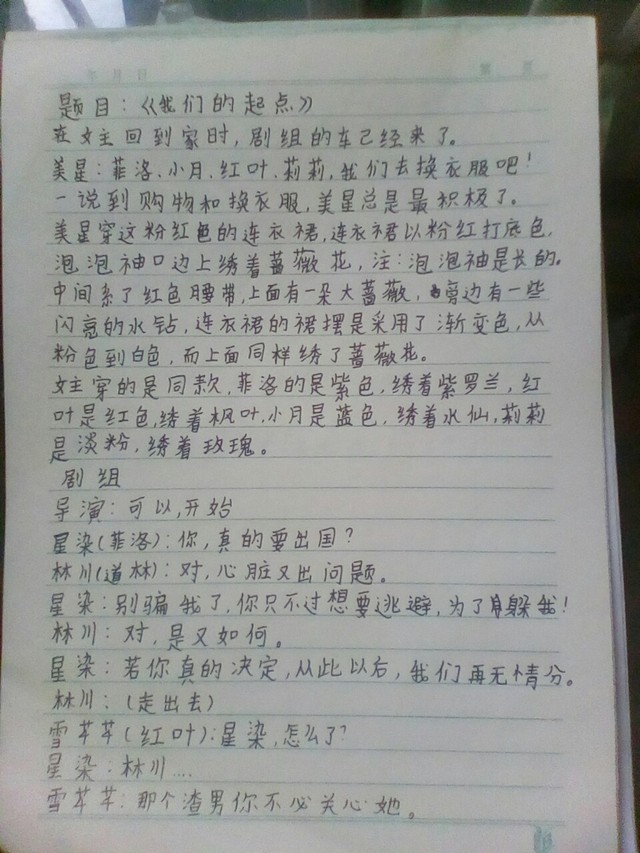 年 月 日
题目：《我们的起点》
在女主回到家时，剧组的车已经来了。
美星：菲洛、小月、红叶、莉莉，我们去换衣服吧！
一说到购物和换衣服，美星总是最积极了。
美星穿这粉红色的连衣裙，连衣裙以粉红打底色，
泡泡袖口边上绣着蔷薇花，注：泡泡袖是长的。
中间系了红色腰带，上面有一朵大蔷薇，旁边有一些
闪亮的水钻，连衣裙的裙摆是采用了渐变色，从
粉色到白色，而上面同样绣了蔷薇花。
女主穿的是同款，菲洛的是紫色，绣着紫罗兰，红
叶是红色，绣着枫叶，小月是蓝色，绣着水仙，莉莉
是淡粉，绣着玫瑰。
剧组
导演：可以，开始
星染（菲洛）：你，真的要出国？
林川（道林）：对，心脏又出问题。
星染：别骗我了，你只不过想要逃避，为了躲我！
林川：对，是又如何。
星染：若你真的决定，从此以后，我们再无情分。
林川：（走出去）
雪芊芊（红叶）：星染，怎么了？
星染：林川....
雪芊芊：那个渣男你不必关心她。